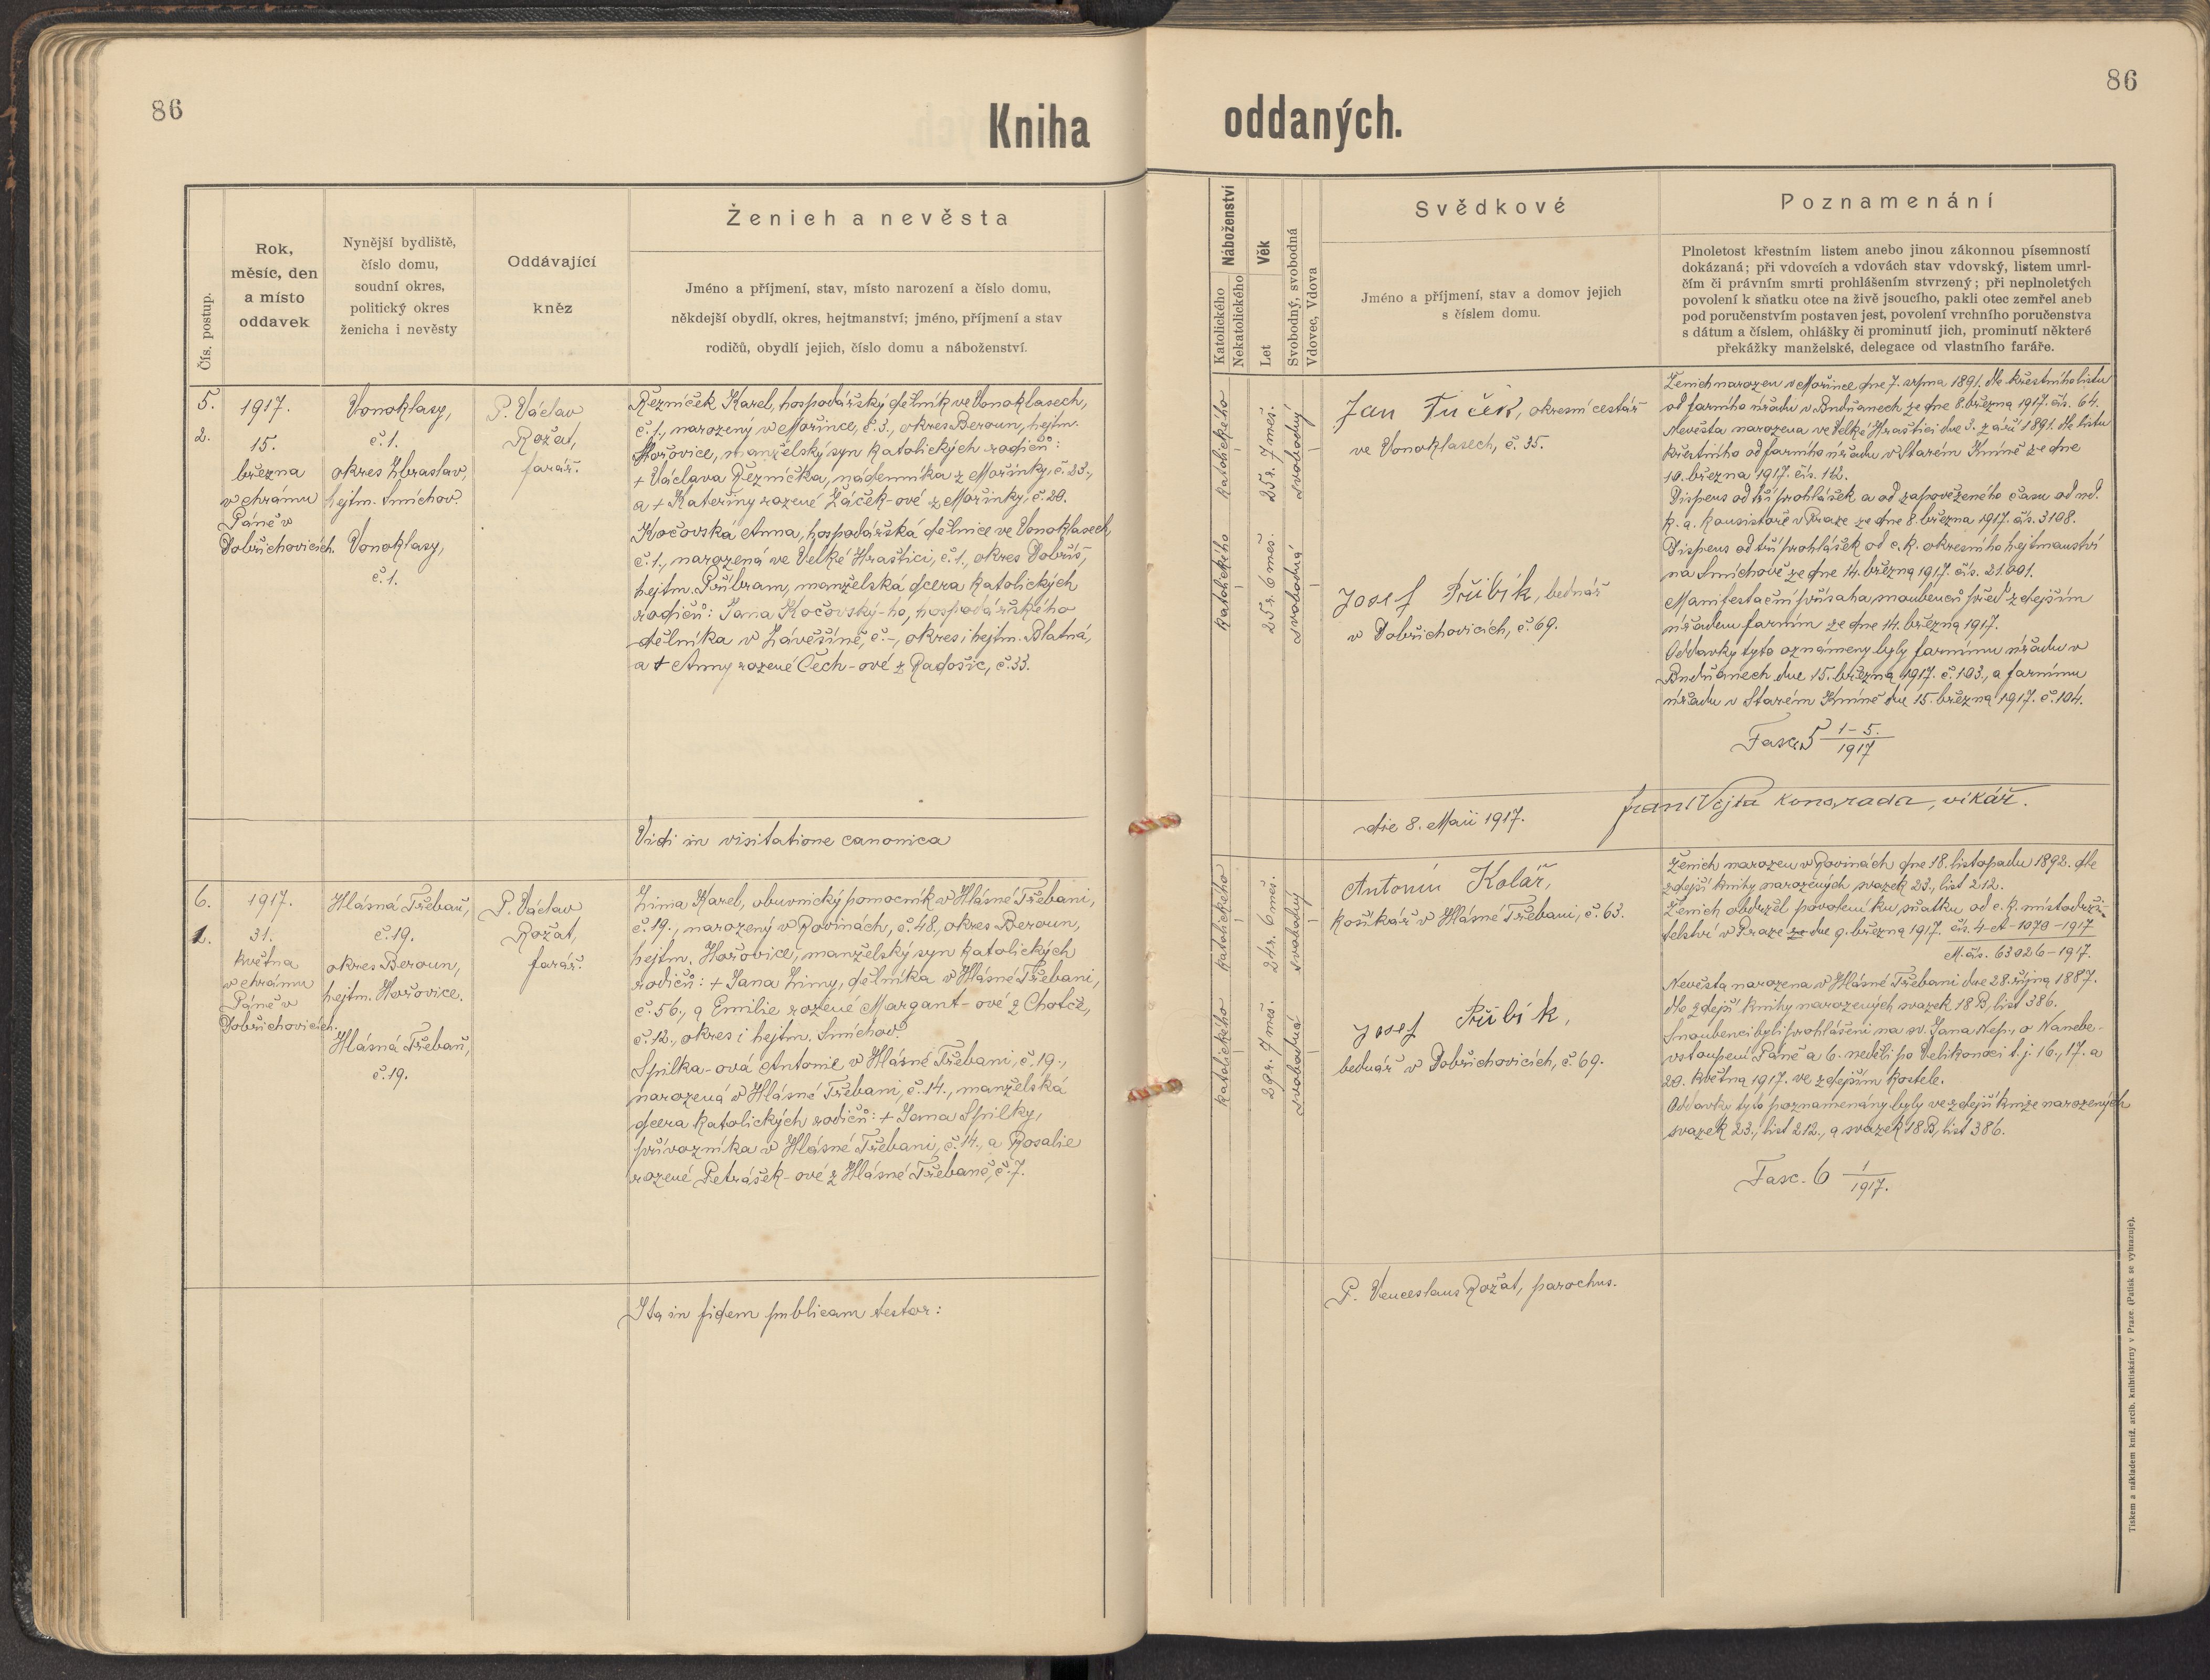 86
Kniha
Čís. postup.
Rok,
měsíc, den
a místo
oddavek
Nynější bydliště,
číslo domu,
soudní okres,
politický okres
ženicha i nevěsty
Oddávající
kněz
Ženich a nevěsta
Jméno a příjmení, stav, místo narození a číslo domu,
někdejší obydlí, okres, hejtmanství; jméno, příjmení a stav
rodičů, obydlí jejich, číslo domu a náboženství.
5.
2.
1917.
15.
března
v chrámu
Páně v
Dobřichovicích.
Vonoklasy,
č. 1.
okres Zbraslav,
hejtm. Smíchov.
Vonoklasy,
č. 1.
P. Václav
Rožat,
farář.
Řezníček Karel, hospodářský dělník ve Vonoklasech,
č. 1., narozený v Mořince, č. 3., okres Beroun, hejtm.
Hořovice, manželský syn katolických rodičů:
+ Václava Řezníčka, nádenníka z Mořinky, č. 23.,
a + Kateřiny rozené Žáček-ové z Mořinky, č. 20.
Kočovská Anna, hospodářská dělnice ve Vonoklasech,
č. 1., narozená ve Velké Hraštici, č. 1., okres Dobříš,
hejtm. Příbram, manželská dcera katolických
rodičů: Jana Kočovský-ho, hospodářského
dělníka v Závěšíně, č. -, okres i hejtm. Blatná,
a + Anny rozené Čech-ové z Radošic, č. 33.
Vidi in visitatione canonica
6.
1.
1917.
31.
května
v chrámu
Páně v
Dobřichovicích.
Hlásná Třebaň,
č. 19.
okres Beroun,
hejtm. Hořovice.
Hlásná Třebaň,
č. 19.
P. Václav
Rožat,
farář.
Zima Karel, obuvnický pomocník v Hlásné Třebani,
č. 19., narozený v Rovinách, č. 48., okres Beroun,
hejtm. Hořovice, manželský syn katolických
rodičů: + Jana Zimy, dělníka v Hlásné Třebani,
č. 56., a Emilie rozené Margant-ové z Chotče,
č. 12., okres i hejtm. Smíchov.
Spilka-ová Antonie v Hlásné Třebani, č. 19.,
narozená v Hlásné Třebani, č. 14., manželská
dcera katolických rodičů: + Jana Spilky,
přívozníka v Hlásné Třebani, č. 14., a Rosalie
rozené Petrášek-ové z Hlásné Třebaně, č. 7.
Ita in fidem publicam testor:
86
oddaných.
Náboženství
Katolického
Nekatolického
Věk
Let
Svobodný, svobodná
Vdovec, Vdova
Svědkové
Jméno a příjmení, stav a domov jejich
s číslem domu.
Poznamenání
Plnoletost křestním listem anebo jinou zákonnou písemností
dokázaná; při vdovcích a vdovách stav vdovský, listem umrl-
čím či právním smrti prohlášením stvrzený; při neplnoletých
povolení k sňatku otce na živě jsoucího, pakli otec zemřel aneb
pod poručenstvím postaven jest, povolení vrchního poručenstva
s dátum a číslem, ohlášky či prominutí jich, prominutí některé
překážky manželské, delegace od vlastního faráře.
katolického
25 r. 7 měs.
svobodný
katolického
25 r. 6 měs.
svobodná
Jan Tuček, okresní cestář
ve Vonoklasech, č. 35.
Josef Přibík, bednář
v Dobřichovicích, č. 69.
Ženich narozen v Mořince dne 7. srpna 1891. dle křestního listu
od farního úřadu v Budňanech ze dne 8. března 1917. čís. 64.
Nevěsta narozena ve Velké Hraštici dne 3. září 1891. dle listu
křestního od farního úřadu v Starém Kníně ze dne
10. března 1917. čís. 112.
Dispens od tří prohlášek a od zapovězeného času od nd.
k. a. konsistoře v Praze ze dne 8. března 1917. čís. 3108.
Dispens od tří prohlášek od c. k. okresního hejtmanství
na Smíchově ze dne 14. března 1917. čís. 21.001.
Manifestační přísaha snoubenců před zdejším
úřadem farním ze dne 14. března 1917.
Oddavky tyto oznámeny byly farnímu úřadu v
Budňanech dne 15. března 1917. č. 103., a farnímu
úřadu v Starém Kníně dne 15. března 1917. č. 104.
Fasc. 5 1-5./1917
die 8. Maii 1917.
Frant Vojta konsrada, vikář.
katolického
24 r. 6 měs.
svobodný
katolického
29 r. 7 měs.
svobodná
Antonín Kolář,
košíkář v Hlásné Třebani, č. 63.
Josef Přibík,
bednář v Dobřichovicích, č. 69.
Ženich narozen v Rovinách dne 18. listopadu 1892. dle
zdejší knihy narozených svazek 23., list 212.
Ženich obdržel povolení ku sňatku od c. k. místodrži-
telství v Praze ze dne 9. března 1917. čís. 4-A-1070-1917
M. čís. 63026-1917.
Nevěsta narozena v Hlásné Třebani dne 28. října 1887.
dle zdejší knihy narozených svazek 18 B, list 386.
Snoubenci byli prohlášeni na sv. Jana Nep., o Nanebe-
vstoupení Páně a 6. neděli po Velikonoci t. j. 16., 17. a
20. května 1917. ve zdejším kostele.
Oddavky tyto poznamenány byly ve zdejší knize narozených
svazek 23., list 212., a svazek 18 B, list 386.
Fasc. 6 1/1917.
P. Venceslaus Rožat, parochus.
Tiskem a nákladem kníž. arcib. knihtiskárny v Praze. (Patisk se vyhrazuje).